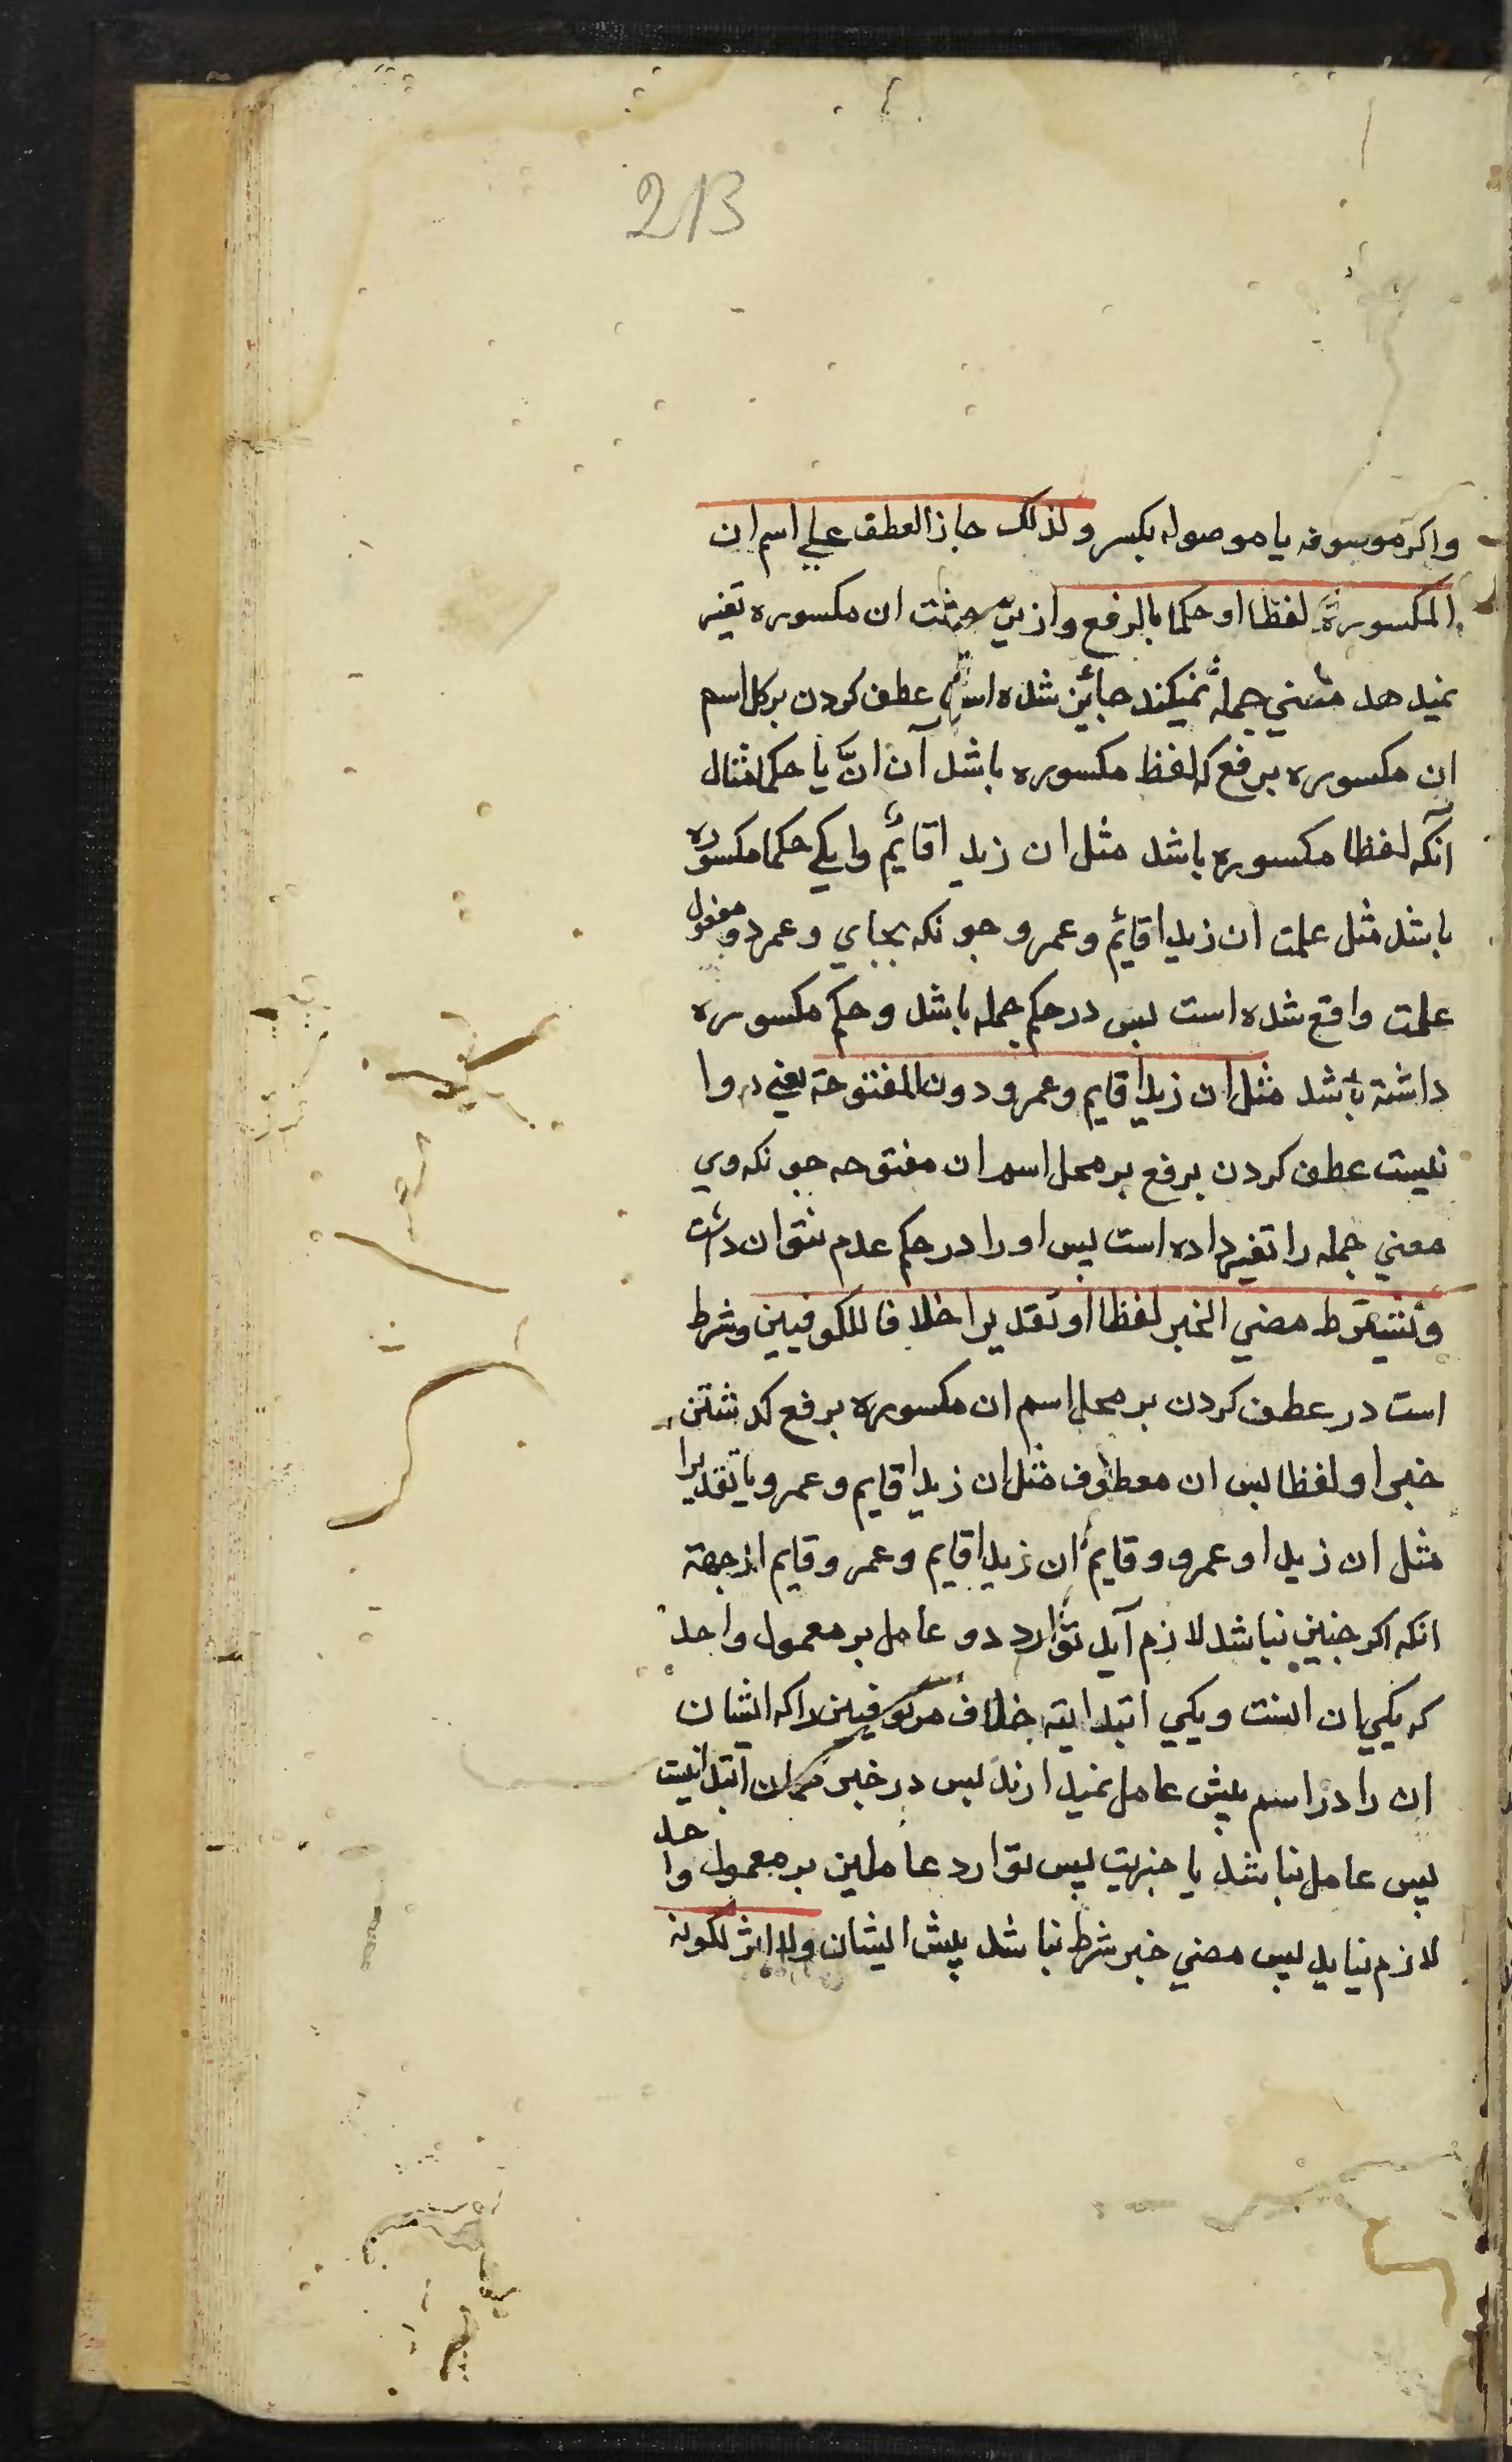 213
واکر موسوفه یا موصوله بکسر ولذلک جاز العطف علی اسم ان
المکسورة لفظا او حکما بالرفع وازین ان مکسوره تغیر
نمیدهد معنی جمله نمیکند جائز شده است عطف کردن بر کل اسم
ان مکسوره برفع که لفظ مکسوره باشد آن انّ یا حکما مثال
آنکه لفظا مکسوره باشد مثل ان زیدا قائم وایکی حکما مکسوره
باشد مثل علمت ان زیدا قائم وعمرو جونکه بجای وعمرو مفعول
علمت واقع شده است پس در حکم جمله باشد وحکم مکسوره
داشته باشد مثل ان زیدا قایم وعمرو دون المفتوحة یعنی روا
نیست عطف کردن برفع بر محل اسم ان مفتوحه جونکه وی
معنی جمله را تغیر داده است پس او را در حکم عدم نتوان داشت
وتشترط مضی الخبر لفظا او تقدیرا خلافا للکوفیین وشرط
است در عطف کردن بر محل اسم ان مکسوره برفع کدشتن
خبر او لفظا پس ان معطوف مثل ان زیدا قایم وعمرو یا تقدیرا
مثل ان زیدا وعمرو وقایم ان زیدا قایم وعمرو قایم از جهة
انکه اکر جنین نباشد لازم آید توارد دو عامل بر معمول واحد
که یکی ان است ویکی ابتدایته خلاف مر کوفیین را که ایشان
ان را در اسم پیش عامل نمیدارند پس در خبر ابتدائیت
پس عامل نباشد یا خبریت پس توارد عاملین بر معمول واحد
لازم نیاید پس مضی خبر شرط نباشد پیش ایشان ولا اثر لکونه